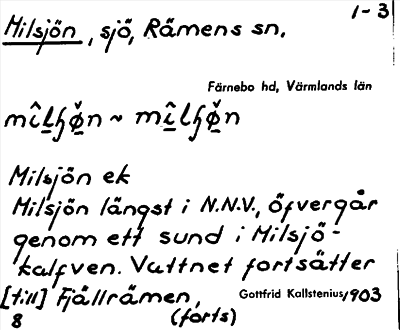 1-3
Milsjön, sjö, Rämens sn.
Färnebo hd, Värmlands län
Milsjön ek
Milsjön längst i N.N.V., öfvergår
genom ett sund i Milsjö-
kalfven. Vattnet fortsätter
[till] Fjällrämen, Gottfrid Kallstenius, 1903
8 (forts)